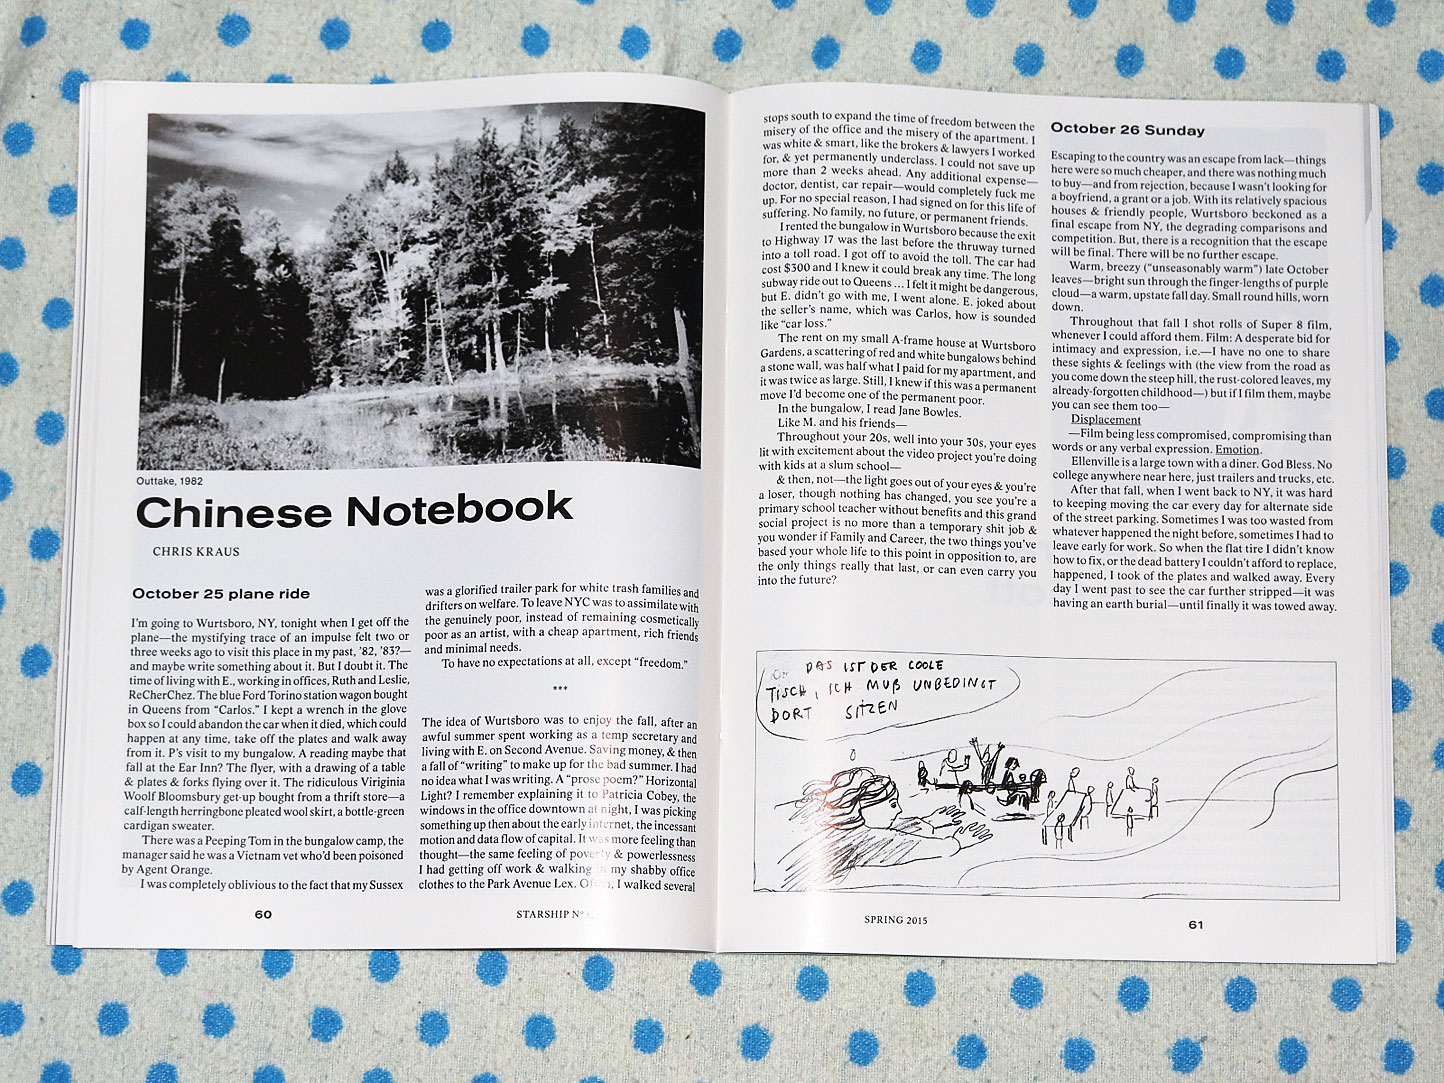 Outtake, 1982
Chinese Notebook
CHRIS KRAUS
October 25 plane ride
I'm going to Wurtsboro, NY, tonight when I get off the
plane—the mystifying trace of an impulse felt two or
three weeks ago to visit this place in my past, '82, '83?—
and maybe write something about it. But I doubt it. The
time of living with E., working in offices, Ruth and Leslie,
ReCherChez. The blue Ford Torino station wagon bought
in Queens from “Carlos.” I kept a wrench in the glove
box so I could abandon the car when it died, which could
happen at any time, take off the plates and walk away
from it. P's visit to my bungalow. A reading maybe that
fall at the Ear Inn? The flyer, with a drawing of a table
& plates & forks flying over it. The ridiculous Viriginia
Woolf Bloomsbury get-up bought from a thrift store—a
calf-length herringbone pleated wool skirt, a bottle-green
cardigan sweater.
There was a Peeping Tom in the bungalow camp, the
manager said he was a Vietnam vet who'd been poisoned
by Agent Orange.
I was completely oblivious to the fact that my Sussex
was a glorified trailer park for white trash families and
drifters on welfare. To leave NYC was to assimilate with
the genuinely poor, instead of remaining cosmetically
poor as an artist, with a cheap apartment, rich friends
and minimal needs.
To have no expectations at all, except “freedom.”
***
The idea of Wurtsboro was to enjoy the fall, after an
awful summer spent working as a temp secretary and
living with E. on Second Avenue. Saving money, & then
a fall of “writing” to make up for the bad summer. I had
no idea what I was writing. A “prose poem?” Horizontal
Light? I remember explaining it to Patricia Cobey, the
windows in the office downtown at night, I was picking
something up then about the early internet, the incessant
motion and data flow of capital. It was more feeling than
thought—the same feeling of poverty & powerlessness
I had getting off work & walking in my shabby office
clothes to the Park Avenue Lex. Often, I walked several
60
STARSHIP N°
stops south to expand the time of freedom between the
misery of the office and the misery of the apartment. I
was white & smart, like the brokers & lawyers I worked
for, & yet permanently underclass. I could not save up
more than 2 weeks ahead. Any additional expense—
doctor, dentist, car repair—would completely fuck me
up. For no special reason, I had signed on for this life of
suffering. No family, no future, or permanent friends.
I rented the bungalow in Wurtsboro because the exit
to Highway 17 was the last before the thruway turned
into a toll road. I got off to avoid the toll. The car had
cost $300 and I knew it could break any time. The long
subway ride out to Queens ... I felt it might be dangerous,
but E. didn't go with me, I went alone. E. joked about
the seller's name, which was Carlos, how is sounded
like “car loss.”
The rent on my small A-frame house at Wurtsboro
Gardens, a scattering of red and white bungalows behind
a stone wall, was half what I paid for my apartment, and
it was twice as large. Still, I knew if this was a permanent
move I'd become one of the permanent poor.
In the bungalow, I read Jane Bowles.
Like M. and his friends—
Throughout your 20s, well into your 30s, your eyes
lit with excitement about the video project you're doing
with kids at a slum school—
& then, not—the light goes out of your eyes & you're
a loser, though nothing has changed, you see you're a
primary school teacher without benefits and this grand
social project is no more than a temporary shit job &
you wonder if Family and Career, the two things you've
based your whole life to this point in opposition to, are
the only things really that last, or can even carry you
into the future?
October 26 Sunday
Escaping to the country was an escape from lack—things
here were so much cheaper, and there was nothing much
to buy—and from rejection, because I wasn't looking for
a boyfriend, a grant or a job. With its relatively spacious
houses & friendly people, Wurtsboro beckoned as a
final escape from NY, the degrading comparisons and
competition. But, there is a recognition that the escape
will be final. There will be no further escape.
Warm, breezy (“unseasonably warm”) late October
leaves—bright sun through the finger-lengths of purple
cloud—a warm, upstate fall day. Small round hills, worn
down.
Throughout that fall I shot rolls of Super 8 film,
whenever I could afford them. Film: A desperate bid for
intimacy and expression, i.e.—I have no one to share
these sights & feelings with (the view from the road as
you come down the steep hill, the rust-colored leaves, my
already-forgotten childhood—) but if I film them, maybe
you can see them too—
Displacement
—Film being less compromised, compromising than
words or any verbal expression. Emotion.
Ellenville is a large town with a diner. God Bless. No
college anywhere near here, just trailers and trucks, etc.
After that fall, when I went back to NY, it was hard
to keeping moving the car every day for alternate side
of the street parking. Sometimes I was too wasted from
whatever happened the night before, sometimes I had to
leave early for work. So when the flat tire I didn't know
how to fix, or the dead battery I couldn't afford to replace,
happened, I took of the plates and walked away. Every
day I went past to see the car further stripped—it was
having an earth burial—until finally it was towed away.
DAS IST DER COOLE
TISCH, ICH MUß UNBEDINGT
DORT SITZEN
SPRING 2015
61